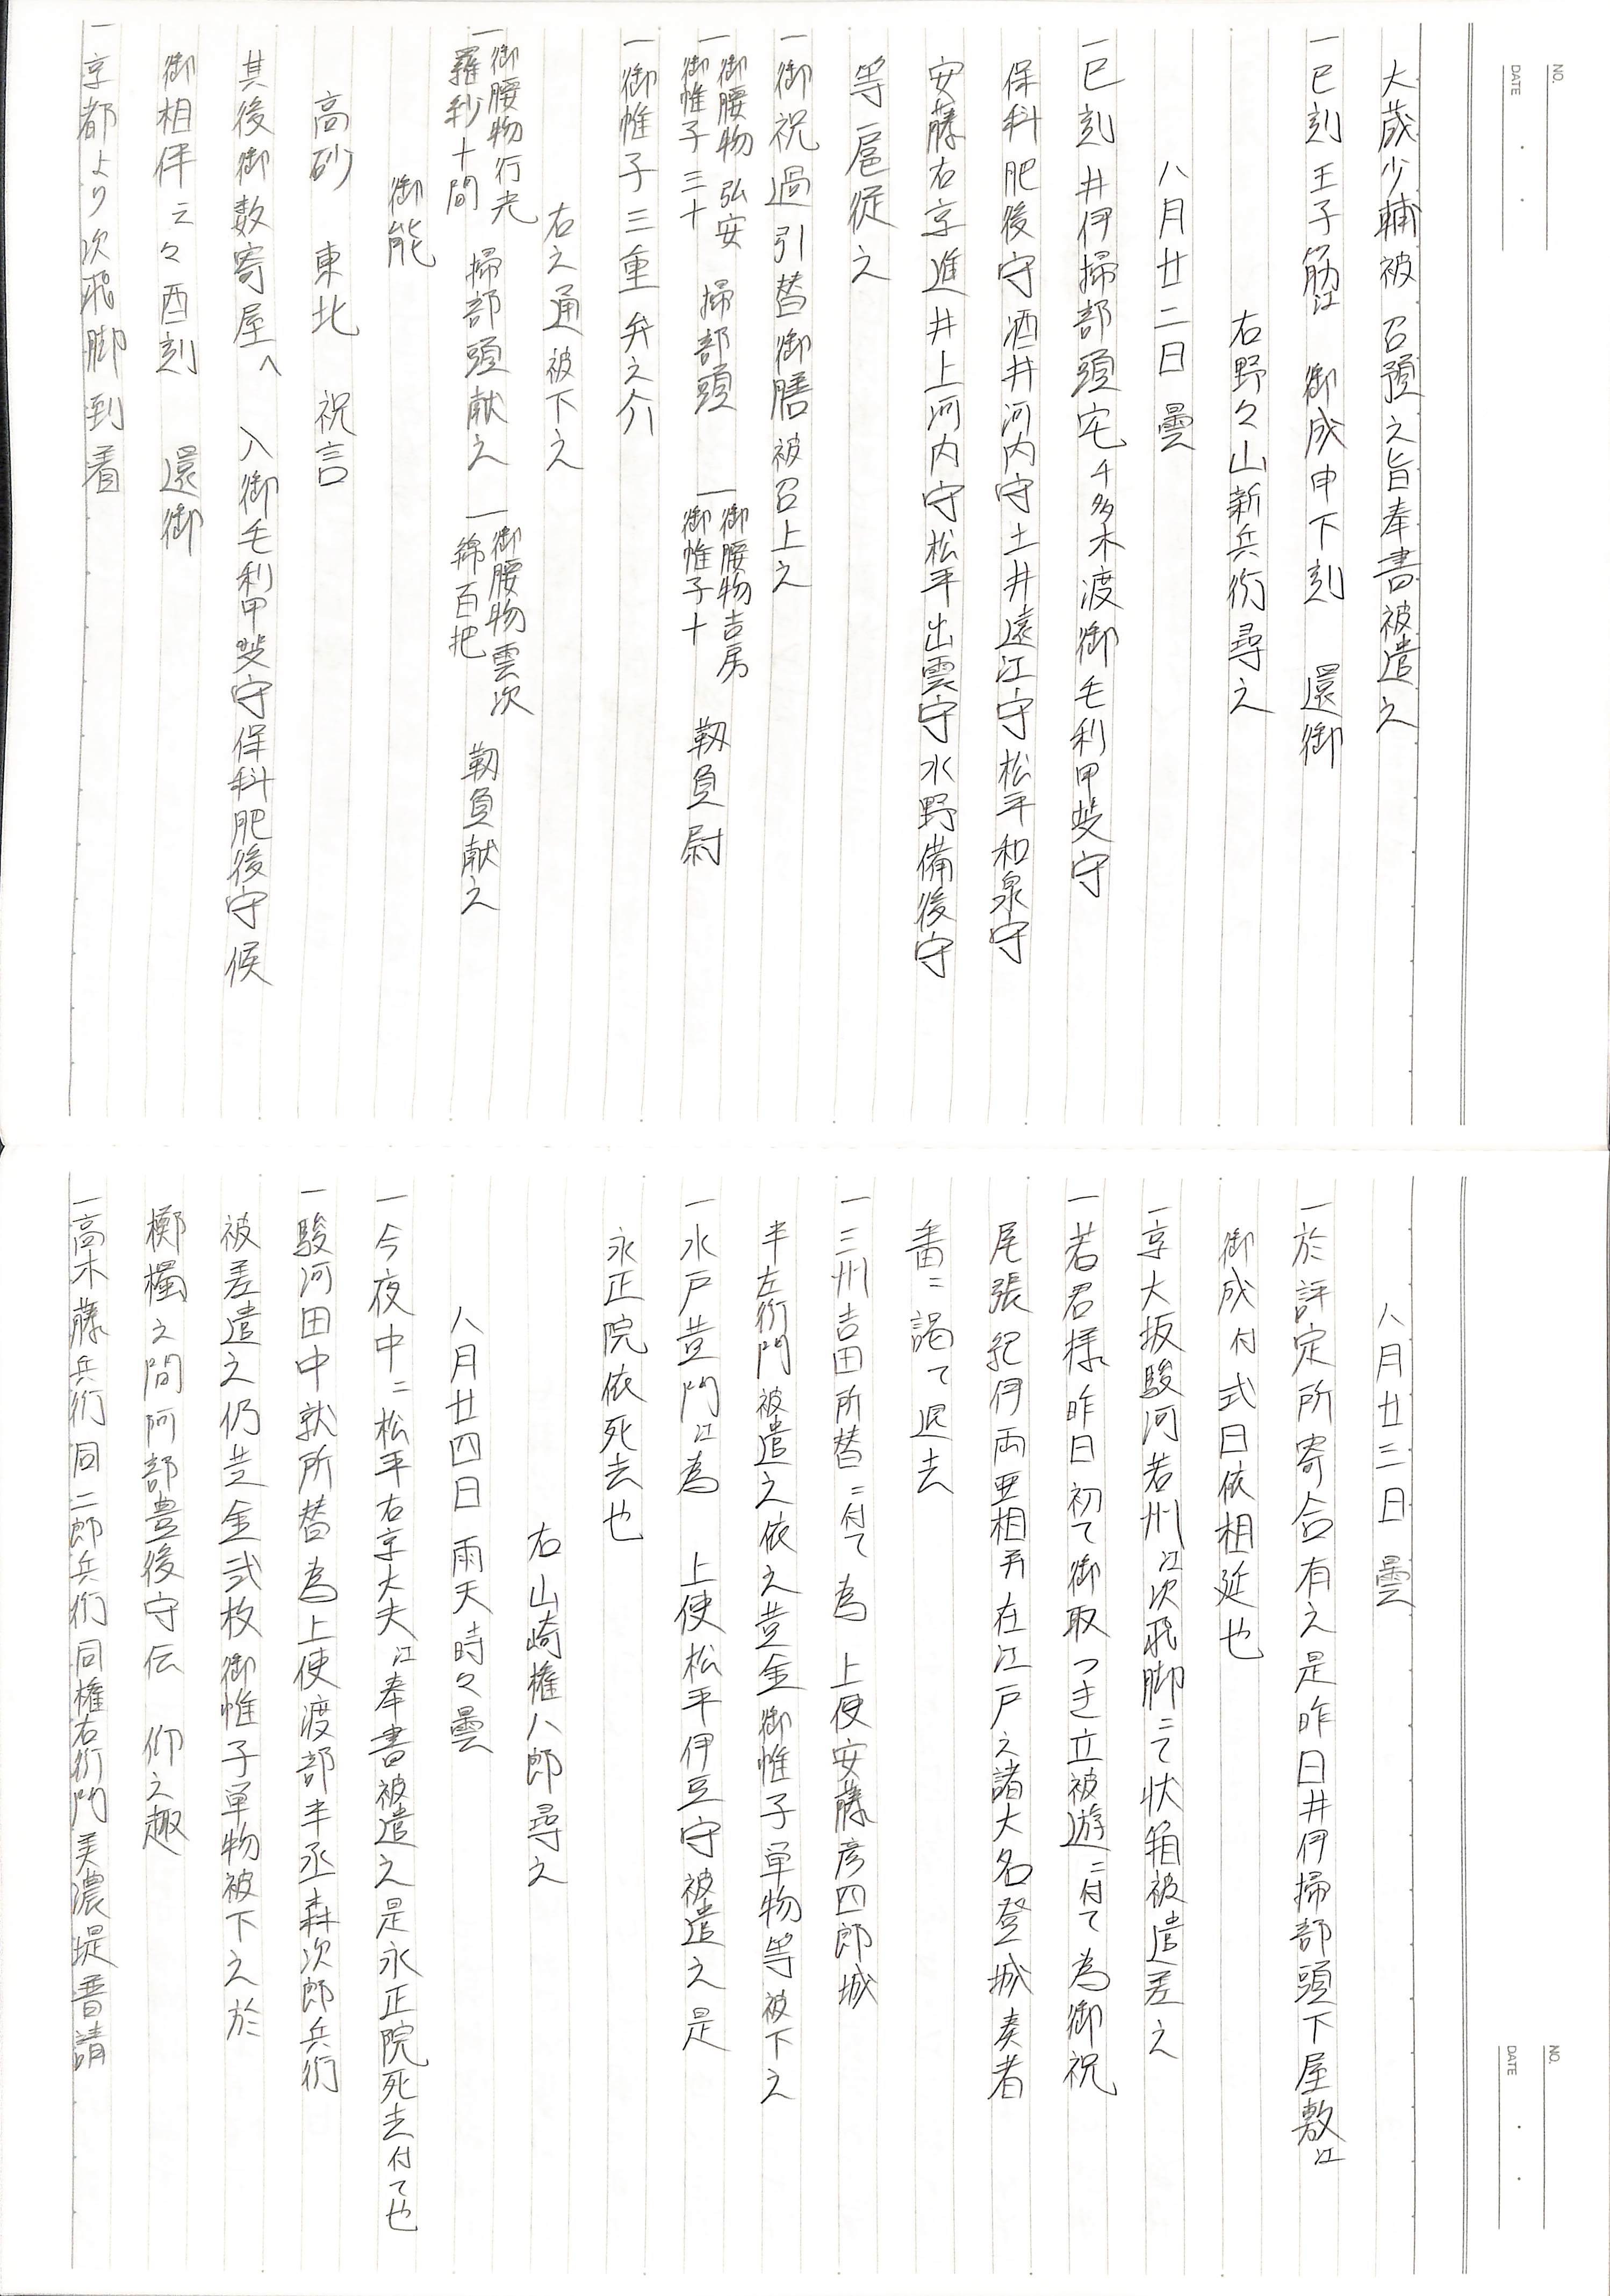 NO.
DATE
大蔵少輔被 召預之旨奉書被遣之
一巳刻王子筋江 御成申下刻 還御
右野々山新兵衛尋之
八月廿二日 曇
一巳刻井伊掃部頭宅千多木渡御毛利甲斐守
保科肥後守酒井河内守土井遠江守松平和泉守
安藤右京進井上河内守松平出雲守水野備後守
等扈従之
一御祝過引替御膳被召上之
一御腰物 弘安 御帷子三十 掃部頭 一御腰物吉房 御帷子十 靱負尉
一御帷子三重弁之介
右之通被下之
一御腰物行光 羅紗十間 掃部頭献之 一御腰物雲次 綿百把 靱負献之
御能
高砂 東北 祝言
其後御数寄屋へ 入御毛利甲斐守保科肥後守候
御相伴云々酉刻 還御
一京都より次飛脚到着
NO.
DATE
八月廿三日 曇
一於評定所寄合有之是昨日井伊掃部頭下屋敷江
御成付式日依相延也
一京大坂駿河若州江次飛脚ニて状箱被遣差之
一若君様昨日初て御取つき立被遊ニ付て為御祝
尾張紀伊両亜相并在江戸之諸大名登城奏者
番ニ謁て退去
一三州吉田所替ニ付て為 上使安藤彦四郎城
半左衛門被遣之依之黄金御帷子単物等被下之
一水戸黄門江為 上使松平伊豆守被遣之是
永正院依死去也
右山崎権八郎尋之
八月廿四日 雨天時々曇
一今夜中ニ松平右京大夫江奉書被遣之是永正院死去付て也
一駿河田中就所替為上使渡部半丞森次郎兵衛
被差遣之仍黄金弐枚御帷子単物被下之於
檜之間阿部豊後守伝 仰之趣
一高木藤兵衛同二郎兵衛同権右衛門美濃堤普請